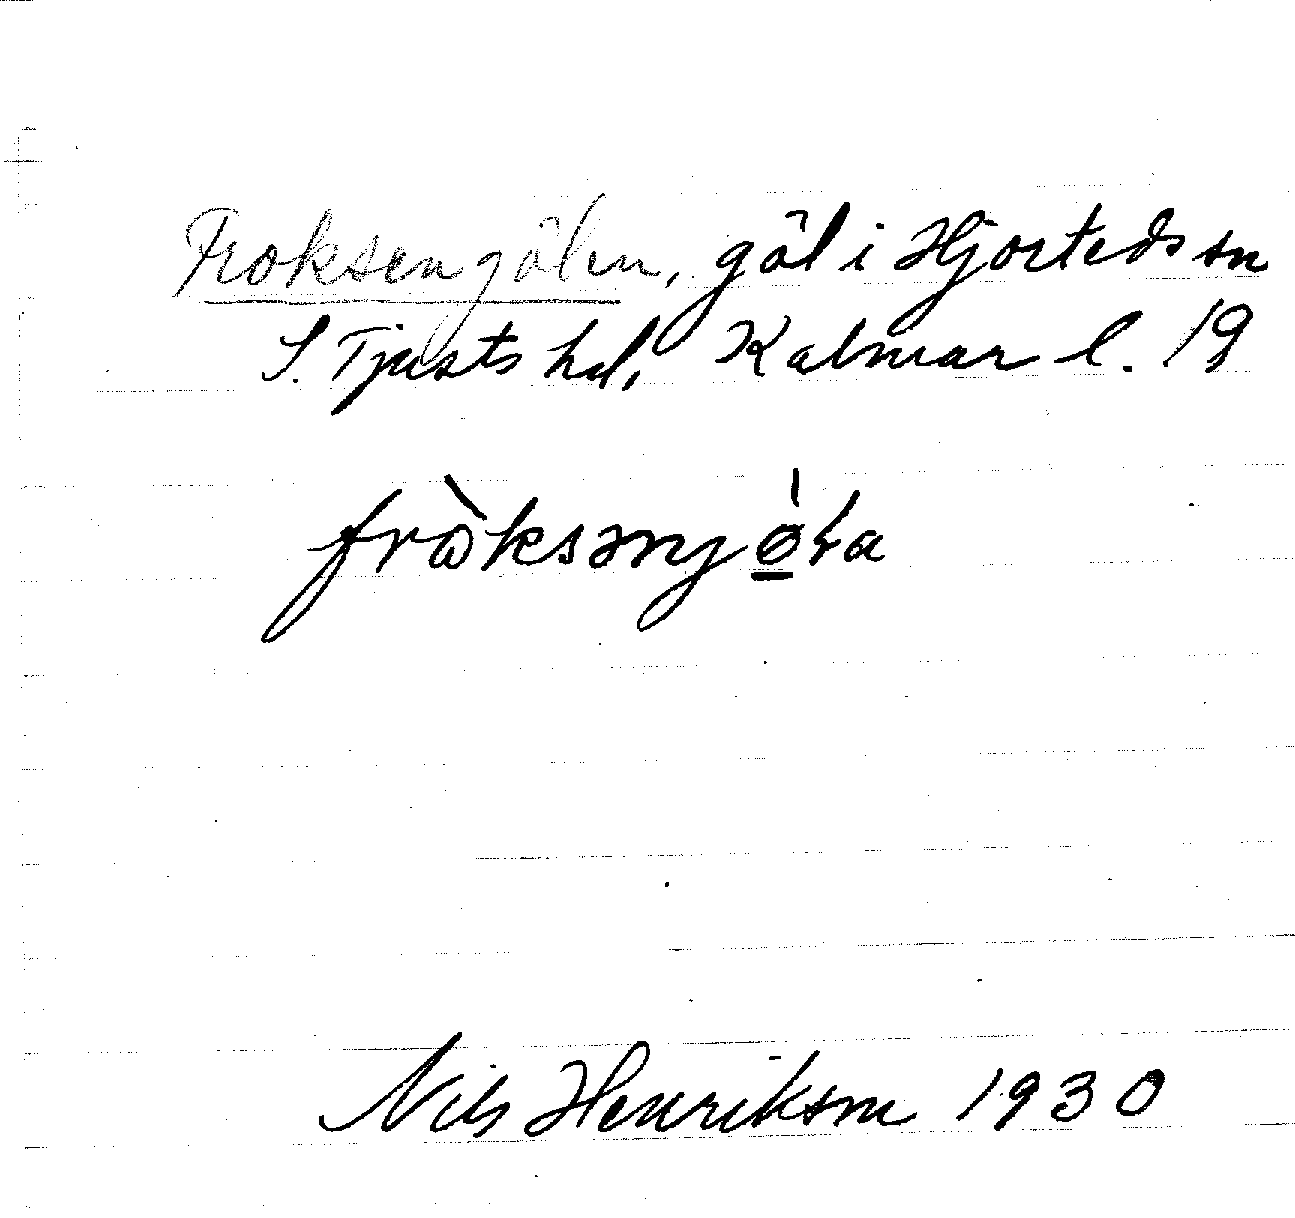 Froksengölen, göl i Hjorteds sn
S. Tjusts hd, Kalmar l. 19
fròksənjǿ̲ɫa
Nils Henrikson 1930